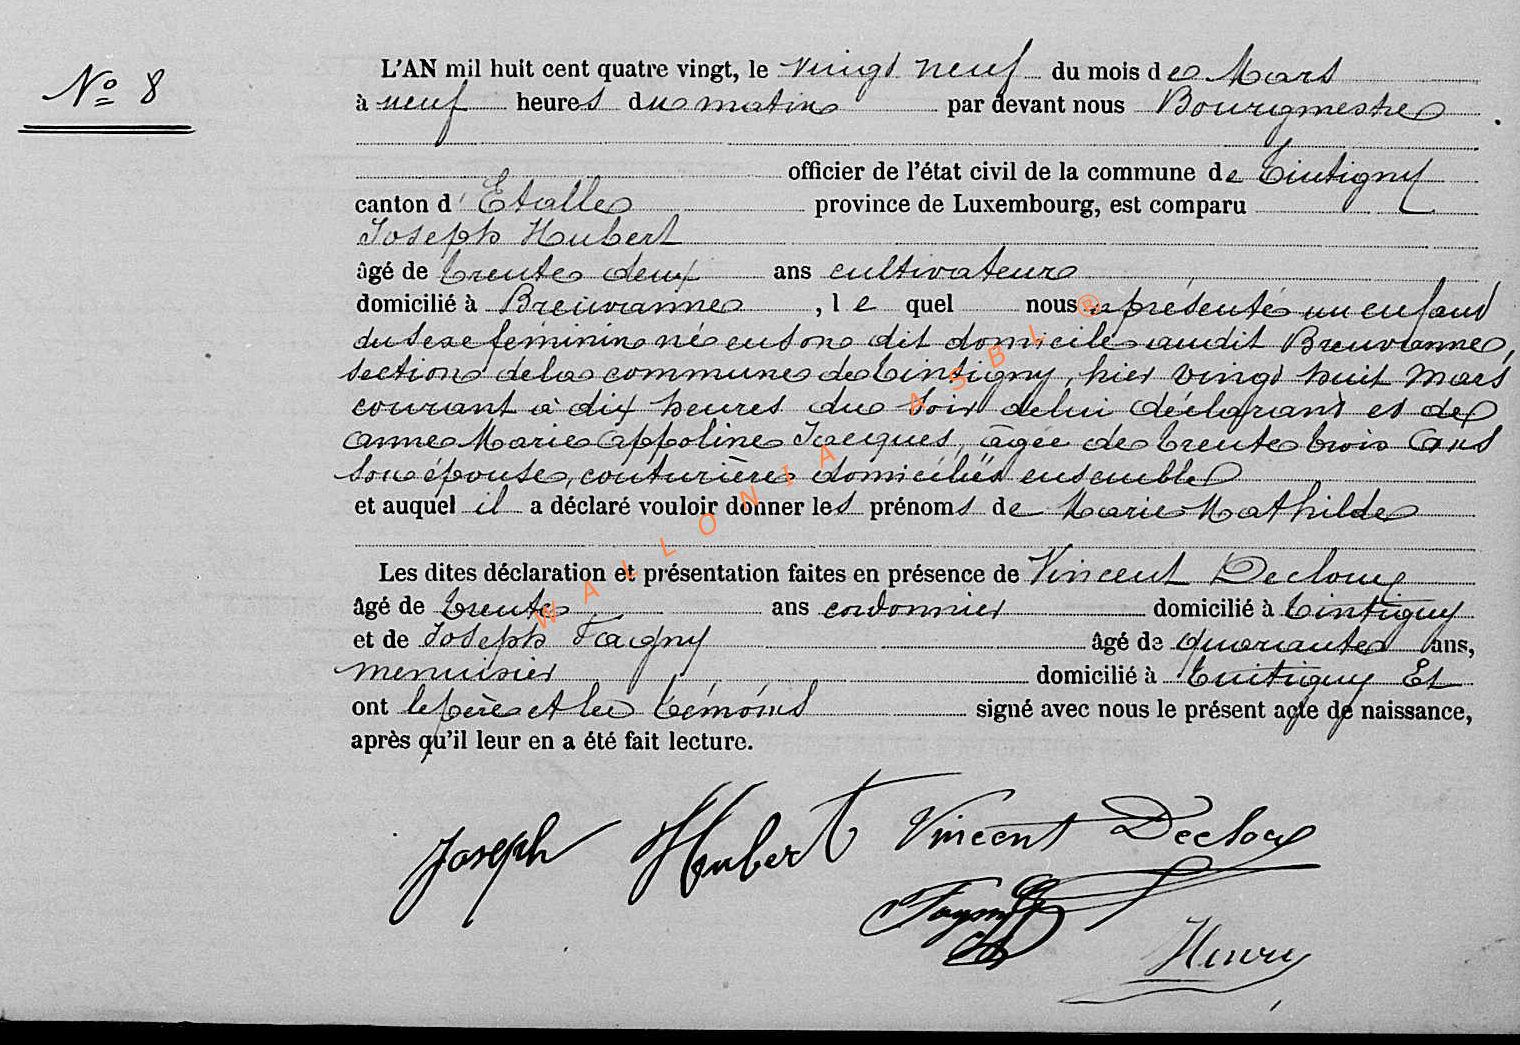 No 8
L'AN mil huit cent quatre vingt, le vingt neuf du mois de Mars
à neuf heures du matin par devant nous Bourgmestre
officier de l'état civil de la commune de Tintigny
canton d'Etalle province de Luxembourg, est comparu
Joseph Hubert
âgé de trente deux ans cultivateur
domicilié à Breuvanne, le quel nous a présenté un enfant
du sexe féminin né en son dit domicile audit Breuvanne,
section de la commune de Tintigny, hier vingt huit Mars
courant à dix heures du soir de lui déclarant et de
Anne Marie Appoline Jacques, âgée de trente trois ans
son épouse, couturière domiciliés ensemble
et auquel il a déclaré vouloir donner les prénoms de Marie Mathilde
Les dites déclaration et présentation faites en présence de Vincent Decloux
âgé de trente ans cordonnier domicilié à Tintigny
et de Joseph Fagny âgé de quarante ans,
menuisier domicilié à Tintigny Et
ont le père et les témoins signé avec nous le présent acte de naissance,
après qu'il leur en a été fait lecture.
Joseph Hubert Vincent Decloux
Fagny
Henry
WALLONIA ASBL ®